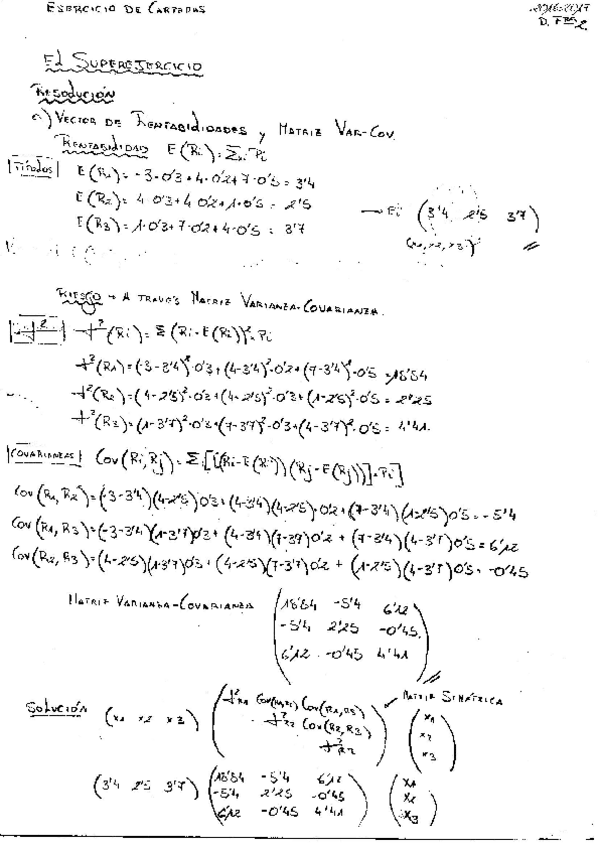 EJERCICIO DE CARTERAS
2016-2017
D. Fra 2
EL SUPEREJERCICIO
RESOLUCIÓN
a) VECTOR DE RENTABILIDADES y MATRIZ VAR-COV.
RENTABILIDAD E(Ri)=Σ.Pi
TÍTULOS
E(R1)=-3·0'3+4·0'2+7·0'5=3'4
E(R2)=4·0'3+4·0'2+1·0'5=2'5
E(R3)=1·0'3+7·0'2+4·0'5=3'7
→ Ei (3'4 2'5 3'7)
(x1, x2, x3)
RIESGO → A TRAVÉS MATRIZ VARIANZA-COVARIANZA.
σ²(Ri)=Σ(Ri-E(Ri))²·Pi
σ²(R1)=(-3-3'4)²·0'3+(4-3'4)²·0'2+(7-3'4)²·0'5=18'84
σ²(R2)=(4-2'5)²·0'3+(4-2'5)²·0'2+(1-2'5)²·0'5=2'25
σ²(R3)=(1-3'7)²·0'3+(7-3'7)²·0'3+(4-3'7)²·0'5=4'41
COVARIANZAS Cov(Ri,Rj)=Σ[[(Ri-E(Ri))(Rj-E(Rj))]·Pi]
Cov(R1,R2)=(-3-3'4)(4-2'5)0'3+(4-3'4)(4-2'5)·0'2+(7-3'4)(1-2'5)0'5=-5'4
Cov(R1,R3)=(-3-3'4)(1-3'7)0'3+(4-3'4)(7-3'7)0'2+(7-3'4)(4-3'7)0'5=6'12
Cov(R2,R3)=(4-2'5)(1-3'7)0'3+(4-2'5)(7-3'7)0'2+(1-2'5)(4-3'7)0'5=-0'45
MATRIZ VARIANZA-COVARIANZA
18'84 -5'4 6'12
-5'4 2'25 -0'45
6'12 -0'45 4'41
SOLUCIÓN
MATRIZ SIMÉTRICA
(x1 x2 x3)
σ²R1 Cov(R1,R2) Cov(R1,R3)
σ²R2 Cov(R2,R3)
x1
x2
x3
(3'4 2'5 3'7)
18'84 -5'4 6'12
-5'4 2'25 -0'45
6'12 -0'45 4'41
x1
x2
x3